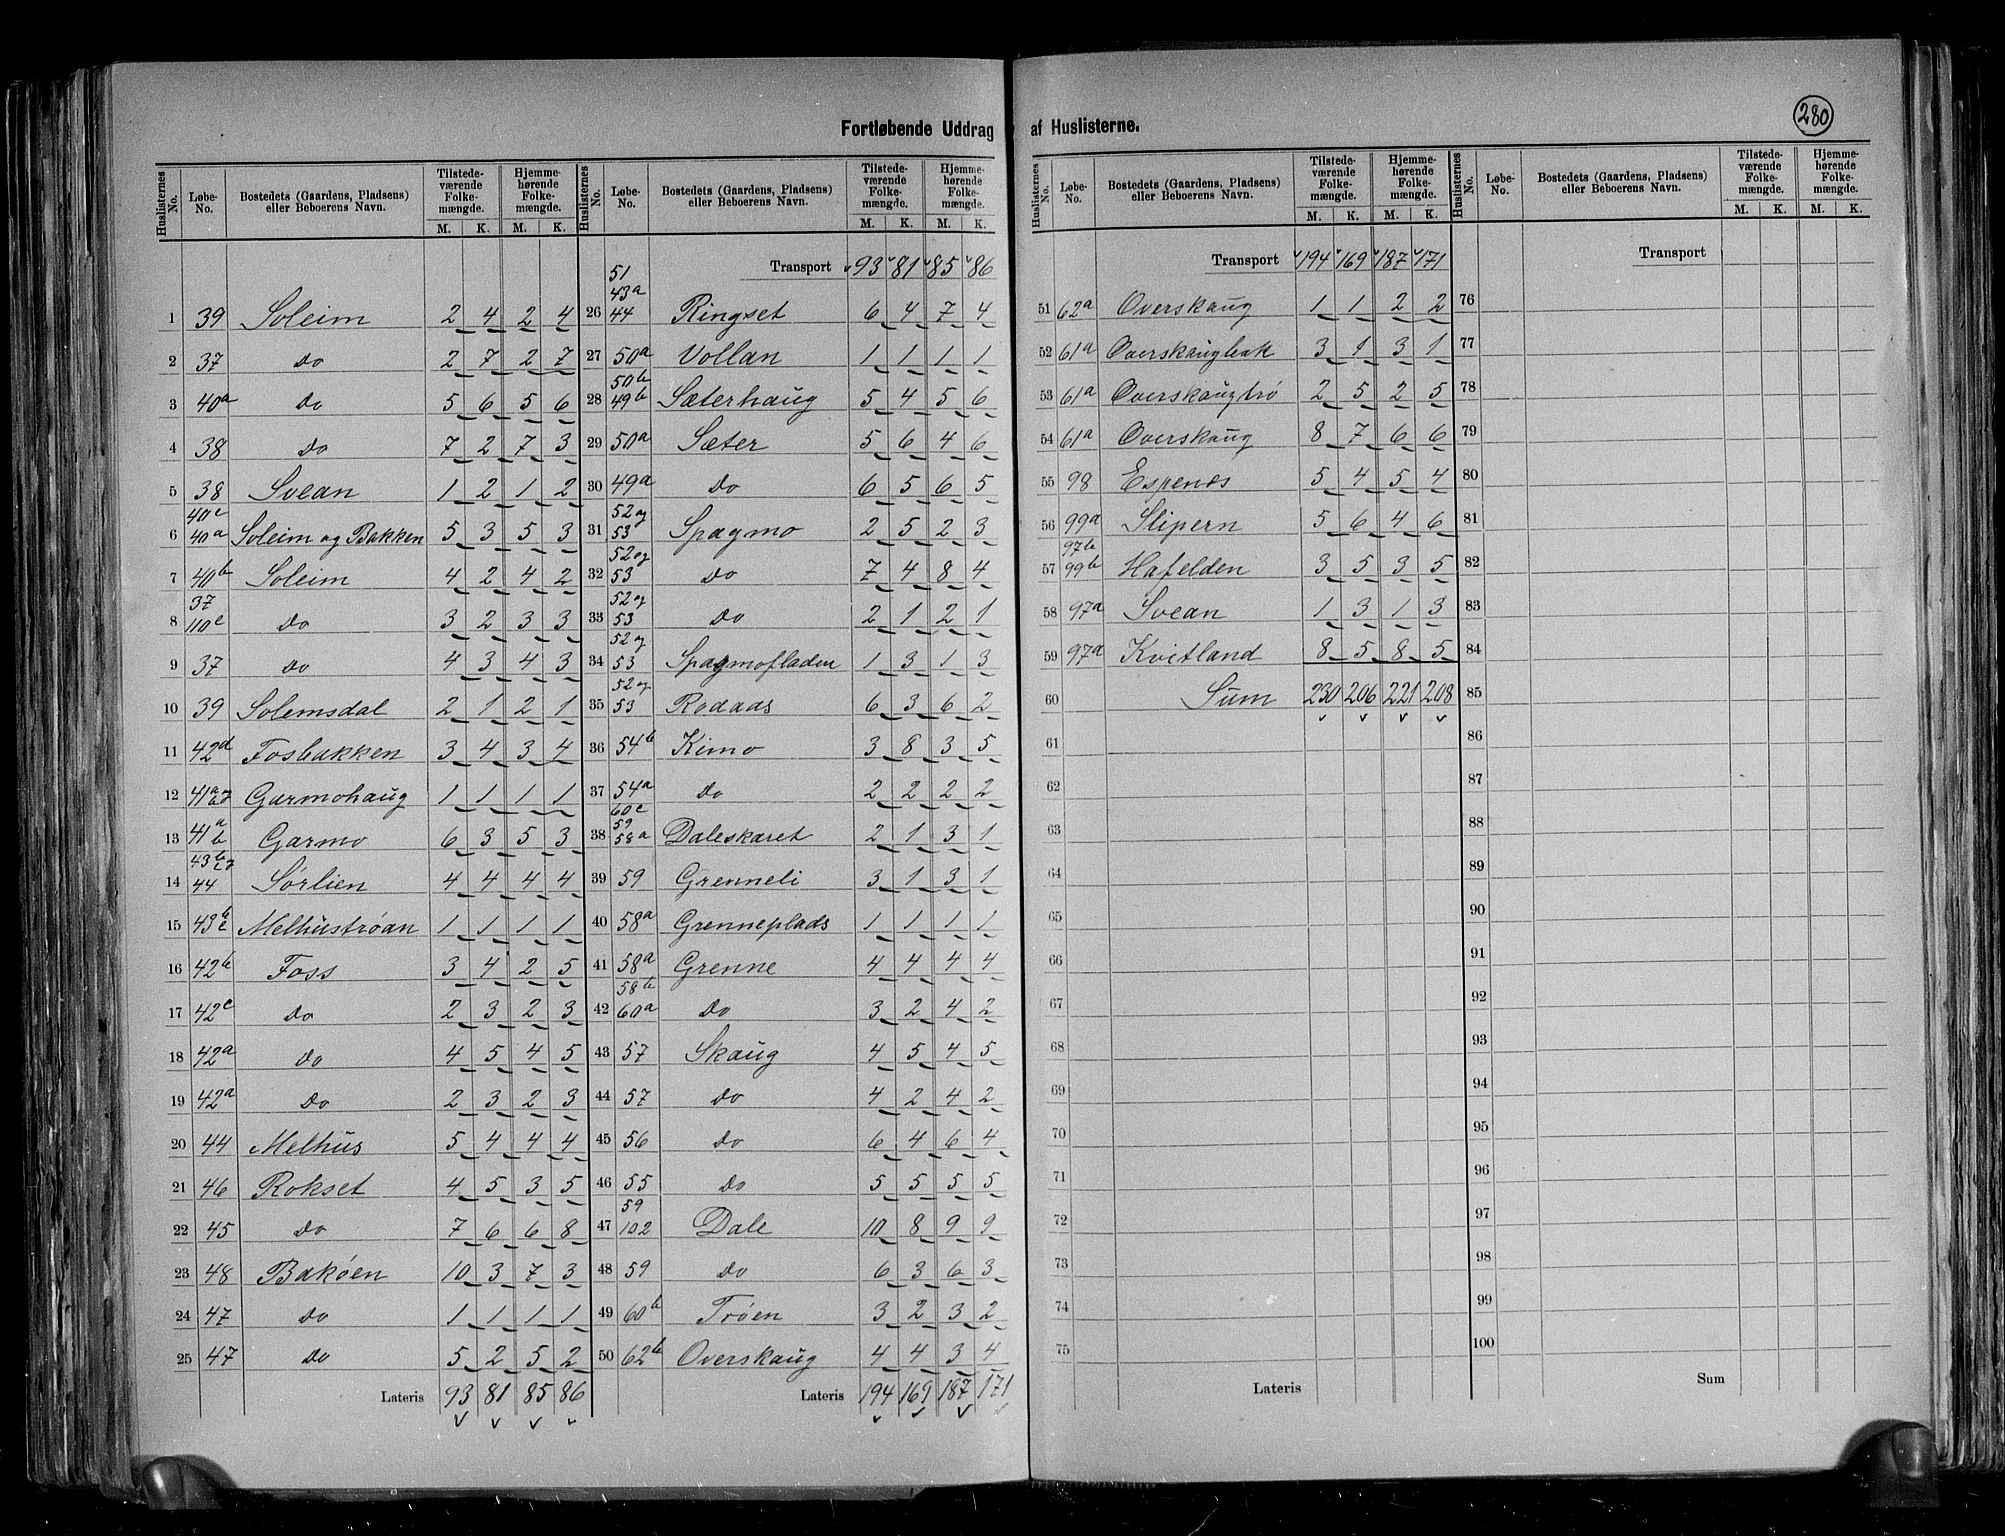 Fortløbende Uddrag af Huslisterne.
280
Huslisternes No. | Løbe-No. | Bostedets (Gaardens, Pladsens) eller Beboerens Navn. | Tilstedeværende Folkemængde. M. K. | Hjemmehørende Folkemængde. M. K.
1 39 Soleim 2 4 2 4
2 37 Do 2 7 2 7
3 40a Do 5 6 5 6
4 38 Do 7 2 7 3
5 38 Svean 1 2 1 2
6 40c 40a Soleim og Bakken 5 3 5 3
7 40b Soleim 4 2 4 2
8 37 110c Do 3 2 3 3
9 37 Do 4 3 4 3
10 39 Solemsdal 2 1 2 1
11 42d Fosbakken 3 4 3 4
12 Garmohaug 1 1 1 1
13 41a b Garmo 6 3 5 3
14 44 Sørlien 4 4 4 4
15 Melhustrøan 1 1 1 1
16 42b Foss 3 4 2 5
17 42c Do 2 3 2 3
18 42a Do 4 5 4 5
19 42a Do 2 3 2 3
20 44 Melhus 5 4 4 4
21 46 Rokset 4 5 3 5
22 45 Do 7 6 6 8
23 48 Bakøen 10 3 7 3
24 47 Do 1 1 1 1
25 47 Do 5 2 5 2
Lateris 93 81 85 86
Huslisternes No. | Løbe-No. | Bostedets (Gaardens, Pladsens) eller Beboerens Navn. | Tilstedeværende Folkemængde. M. K. | Hjemmehørende Folkemængde. M. K.
Transport 93 81 85 86
26 51 43a 44 Ringset 6 4 7 4
27 50a Vollan 1 1 1 1
28 50b 49b Sæterhaug 5 4 5 6
29 50a Sæter 5 6 4 6
30 49a Do 6 5 6 5
31 52 og 53 Spagmo 2 5 2 3
32 52 og 53 Do 7 4 8 4
33 52 og 53 Do 2 1 2 1
34 52 og 53 Spagmofladen 1 3 1 3
35 52 og 53 Rodaas 6 3 6 2
36 54b Kimo 3 8 3 5
37 54a Do 2 2 2 2
38 60c 59 58a Daleskaret 2 1 3 1
39 59 Grenneli 3 1 3 1
40 58a Grenneplads 1 1 1 1
41 58a Grenne 4 4 4 4
42 58b 60a Do 3 2 4 2
43 57 Skaug 4 5 4 5
44 57 Do 4 2 4 2
45 56 Do 6 4 6 4
46 55 Do 5 5 5 5
47 59 102 Dale 10 8 9 9
48 59 Do 6 3 6 3
49 60b Trøen 3 2 3 2
50 62b Overskaug 4 4 3 4
Lateris 194 169 187 171
Huslisternes No. | Løbe-No. | Bostedets (Gaardens, Pladsens) eller Beboerens Navn. | Tilstedeværende Folkemængde. M. K. | Hjemmehørende Folkemængde. M. K.
Transport 194 169 187 171
51 62a Overskaug 1 1 2 2
52 61a 3 1 3 1
53 61a Overskaugtrø 2 5 2 5
54 61a Overskaug 8 7 6 6
55 98 Espenes 5 4 5 4
56 99a Slipern 5 6 4 6
57 97b 99b Hafelden 3 5 3 5
58 97a Svean 1 3 1 3
59 97a Kvitland 8 5 8 5
60 Sum 230 206 221 208
61
62
63
64
65
66
67
68
69
70
71
72
73
74
75
Lateris
Huslisternes No. | Løbe-No. | Bostedets (Gaardens, Pladsens) eller Beboerens Navn. | Tilstedeværende Folkemængde. M. K. | Hjemmehørende Folkemængde. M. K.
Transport
76
77
78
79
80
81
82
83
84
85
86
87
88
89
90
91
92
93
94
95
96
97
98
99
100
Sum